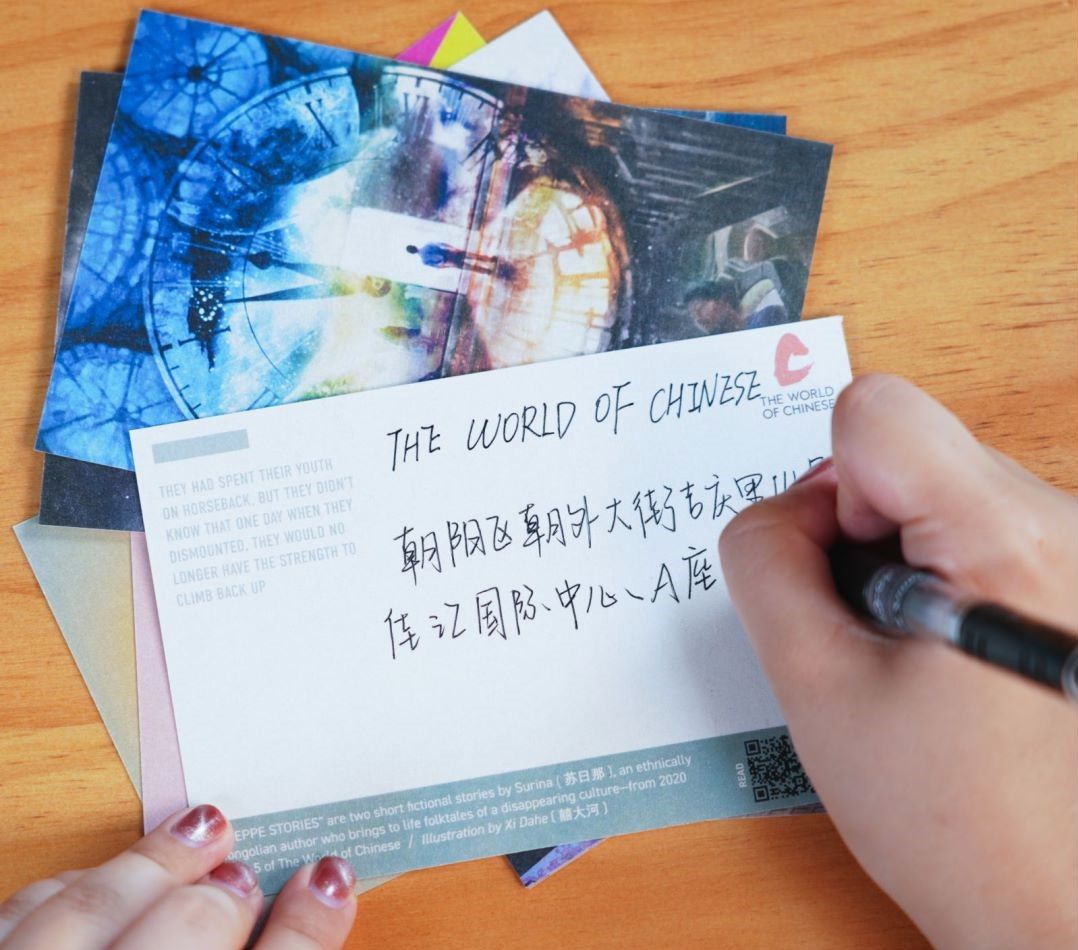 THE WORLD OF CHINESE
THE WORLD
OF CHINESE
THEY HAD SPENT THEIR YOUTH
ON HORSEBACK, BUT THEY DIDN'T
KNOW THAT ONE DAY WHEN THEY
DISMOUNTED, THEY WOULD NO
LONGER HAVE THE STRENGTH TO
CLIMB BACK UP
朝阳区朝外大街吉庆里
佳汇国际中心、A座
EPPE STORIES" are two short fictional stories by Surina ( 苏日那 ), an ethnically
ongolian author who brings to life folktales of a disappearing culture—from 2020
5 of The World of Chinese / Illustration by Xi Dahe ( 囍大河 )
READ
X